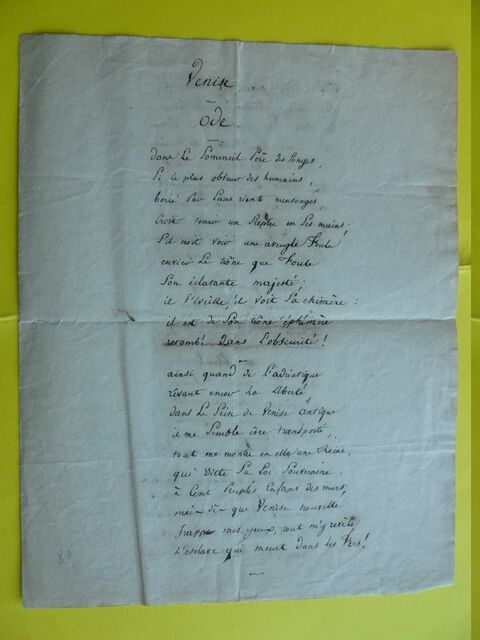 Venise
Ode.
dans Le Sommeil Père des Songes,
Si le plus obscur des humains,
bercé Par Leurs riant mensonges,
Croit tenir un Sceptre en Ses mains,
S'il croit voir une aveugle foule
envier Le trône que foule
Son éclatante majesté;
il S'éveille, il voit Sa chimère:
il est de Son trône éphémère
retombé dans L'obscurité!
ainsi quand de L'adriatique
rêvant encor La Liberté
dans Le Sein de Venise antique
il me Semble être transporté,
tout me montre en elle une Reine,
qui dicte Sa Loi Souveraine
à Cent Peuples Enfans des mers,
mais que Venise nouvelle
frappe mes yeux, tout m'y revèle
L'esclave qui meurt dans les fers!
80